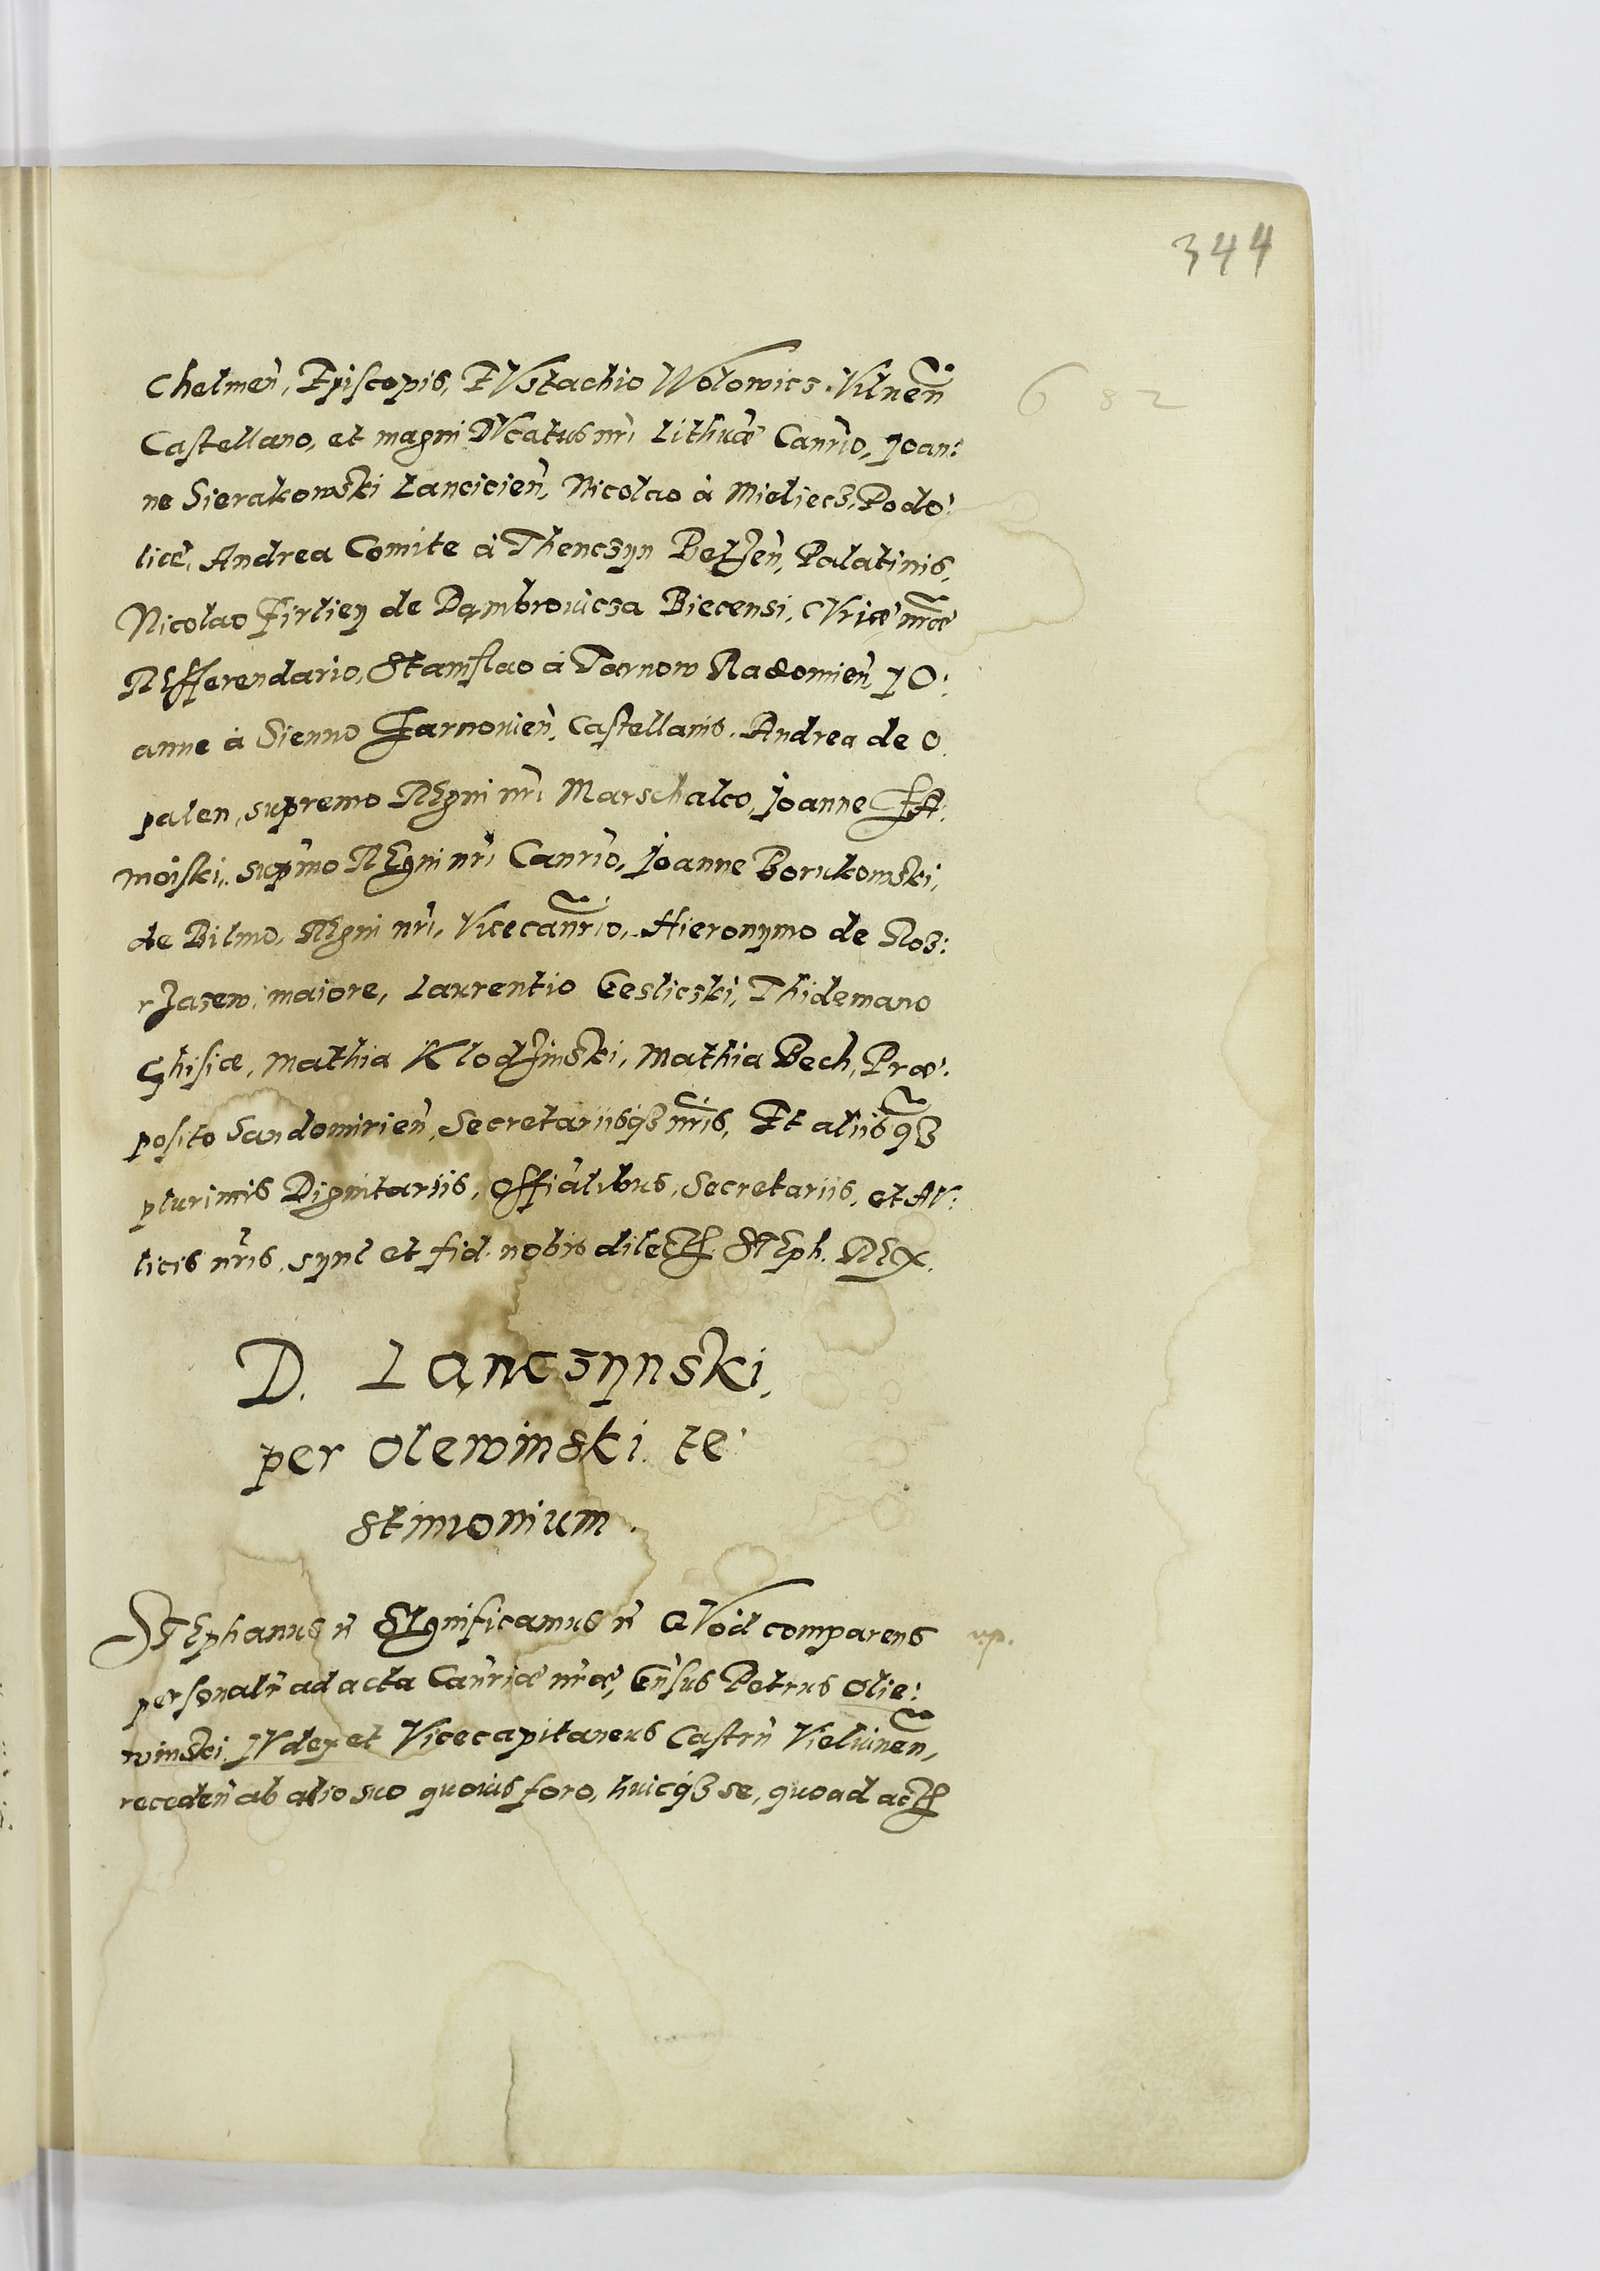 344
682
Chelmen̄, Episcopis, EVstachio Wolowicz, Vilnen̄
Castellano, et magni DVcatus nr̄i Lithuæ Canr̄io, Joan:
ne Sierakowski Lancicien̄, Nicolao à Mieliecz, Podo:
liæ, Andrea Comite à Thenczyn Belzen̄, Palatinis,
Nicolao Firliey de Dąmbrowicza Biecensi, CVriæ nr̄æ
REfferendario, Stanislao à Tarnow Radomien̄, JO:
anne à Sienno Żarnowien̄, Castellanis, Andrea de O
palen, supremo REgni nr̄i Marschalco, Joanne ZA:
moiski, sup̄mo REgni nr̄i Canr̄io, Joanne Borukowski,
de Bilino, REgni nr̄i, Vicecanr̄io, Hieronymo de Roz:
rJazew, maiore, Laurentio Gesliczki, Thidemano
Ghisiæ, Mathia Klodzinski, Mathia Pech, Præ:
posito Sandomirien̄, Secretariisq3 nr̄is, Et aliisq3
plurimis Dignitariis, Offiālibus, Secretariis, et AV:
licis nr̄is, sync et fid. nobis dilectꝭ. STEph. REX.
D. Lanczynski,
per Olewinski te
stimonium.
STEphanus ec̄ SIgnificamus ec̄ QVod comparens
personalr̄ ad acta Canr̄iæ nr̄æ, Gn̄sus Petrus Olie:
winski, JVdex et Vicecapitaneus Castrn̄ Vielunen̄,
receden̄ ab alio suo quovis foro, huicq3 se, quoad actꝭ